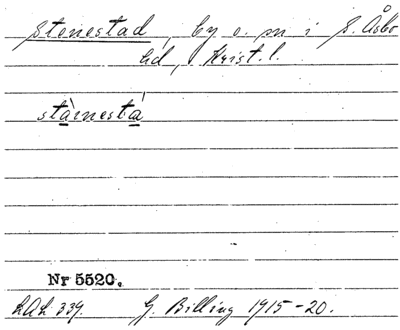 Stenestad, by o. sn i S. Åsbo
hd, Krist. l.
stàinestá
Nr 5520.
LAL 339. G. Billing 1915-20.